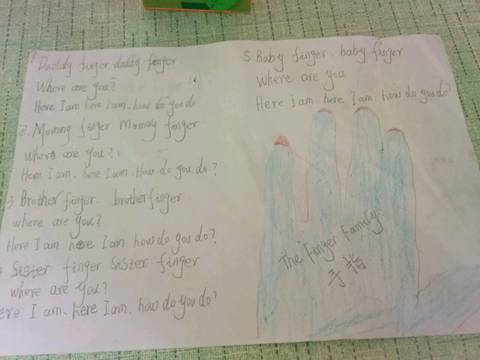 1 Daddy finger daddy finger
Where are you?
Here I am here I am. how do you do
2. Mommy finger Mommy finger
Where are you?
Here I am. here I am. How do you do?
3 Brother finger. brother finger
where are you?
Here I am here I am how do you do?
Sister finger sister finger
where are you?
Here I am. here I am. how do you do?
5 Baby finger. baby finger
Where are you
Here I am. here I am. how do you do?
The Finger Family
手指